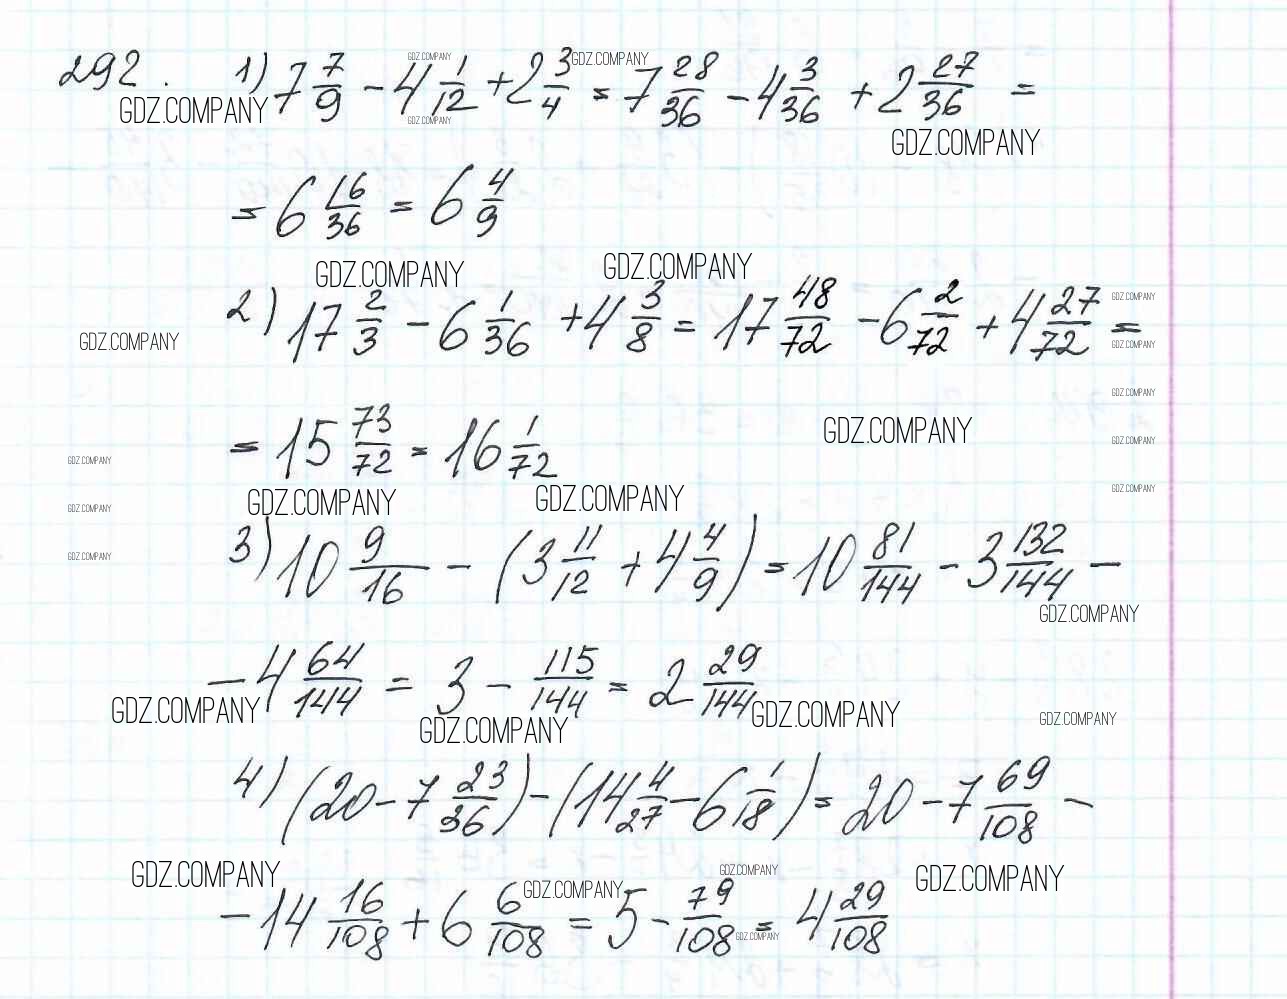 292. 1) 7 7/9 - 4 1/12 + 2 3/4 = 7 28/36 - 4 3/36 + 2 27/36 =
= 6 16/36 = 6 4/9
2) 17 2/3 - 6 1/36 + 4 3/8 = 17 48/72 - 6 2/72 + 4 27/72 =
= 15 73/72 = 16 1/72
3) 10 9/16 - (3 11/12 + 4 4/9) = 10 81/144 - 3 132/144 -
- 4 64/144 = 3 - 115/144 = 2 29/144
4) (20 - 7 23/36) - (14 4/27 - 6 1/18) = 20 - 7 69/108 -
- 14 16/108 + 6 6/108 = 5 - 79/108 = 4 29/108
GDZ.COMPANY